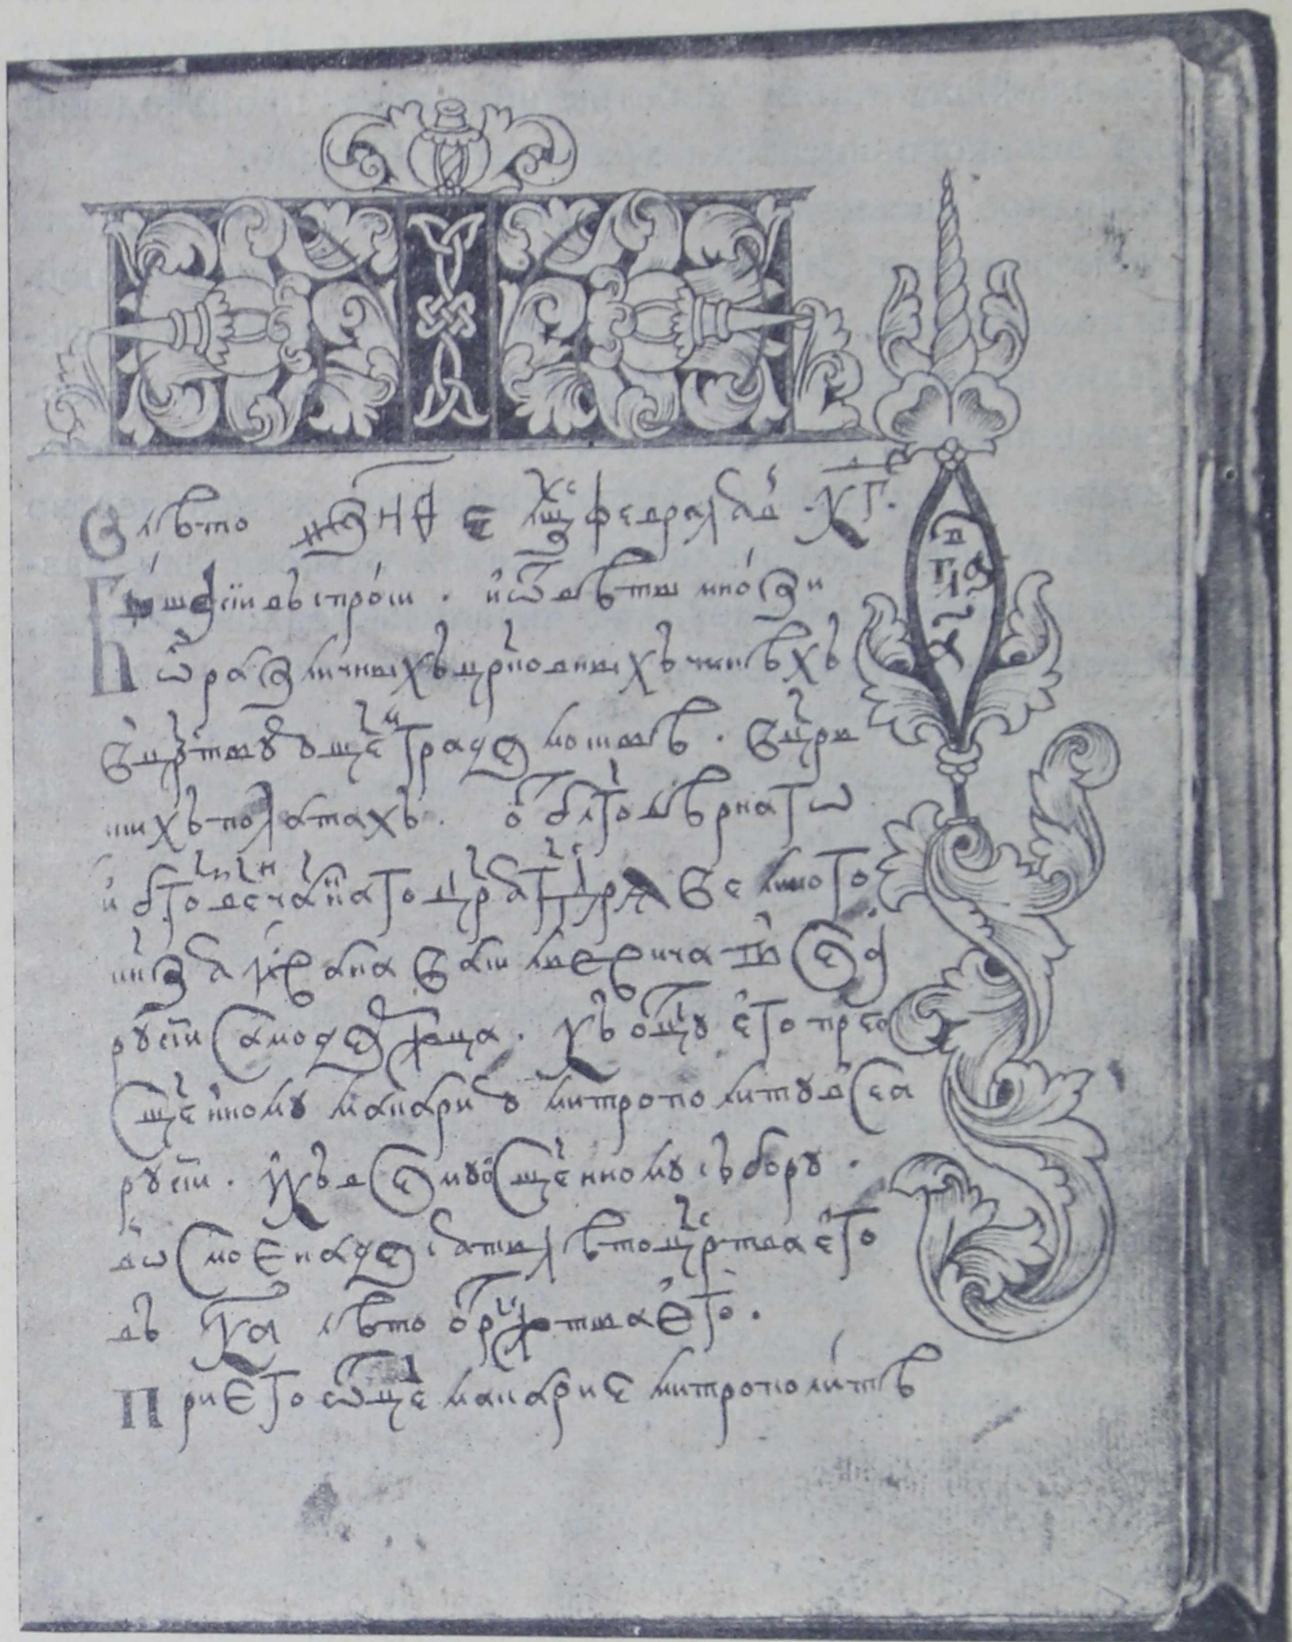 В лѣто ҂зн҃ѳ е мц҃а февраля в҃ к҃г.
Быша сїи въпроси. и ѿвѣты мнози
ѡ различныхъ црк҃овныхъ чинѣхъ
в црⷭ҇твующеⷨ граде москвѣ. в црⷭ҇ки
ихъ полатахъ. ѿ бл҃говѣрнаго
и бг҃овеⷩ҇чаннаго цр҃я гдⷭ҇ря великого
кн҃зя ивана васильевича всеа
русїи самодержца. къ оц҃у его преѡ
сщ҃енному макарию митрополиту всеа
русїи. и къ всему ѡсщ҃енному събору.
въ осмоенадесять лѣто црⷭ҇тва его
въ к҃а лѣто ѿ ржⷭ҇тва его.
При его оц҃е макарие митрополитѣ